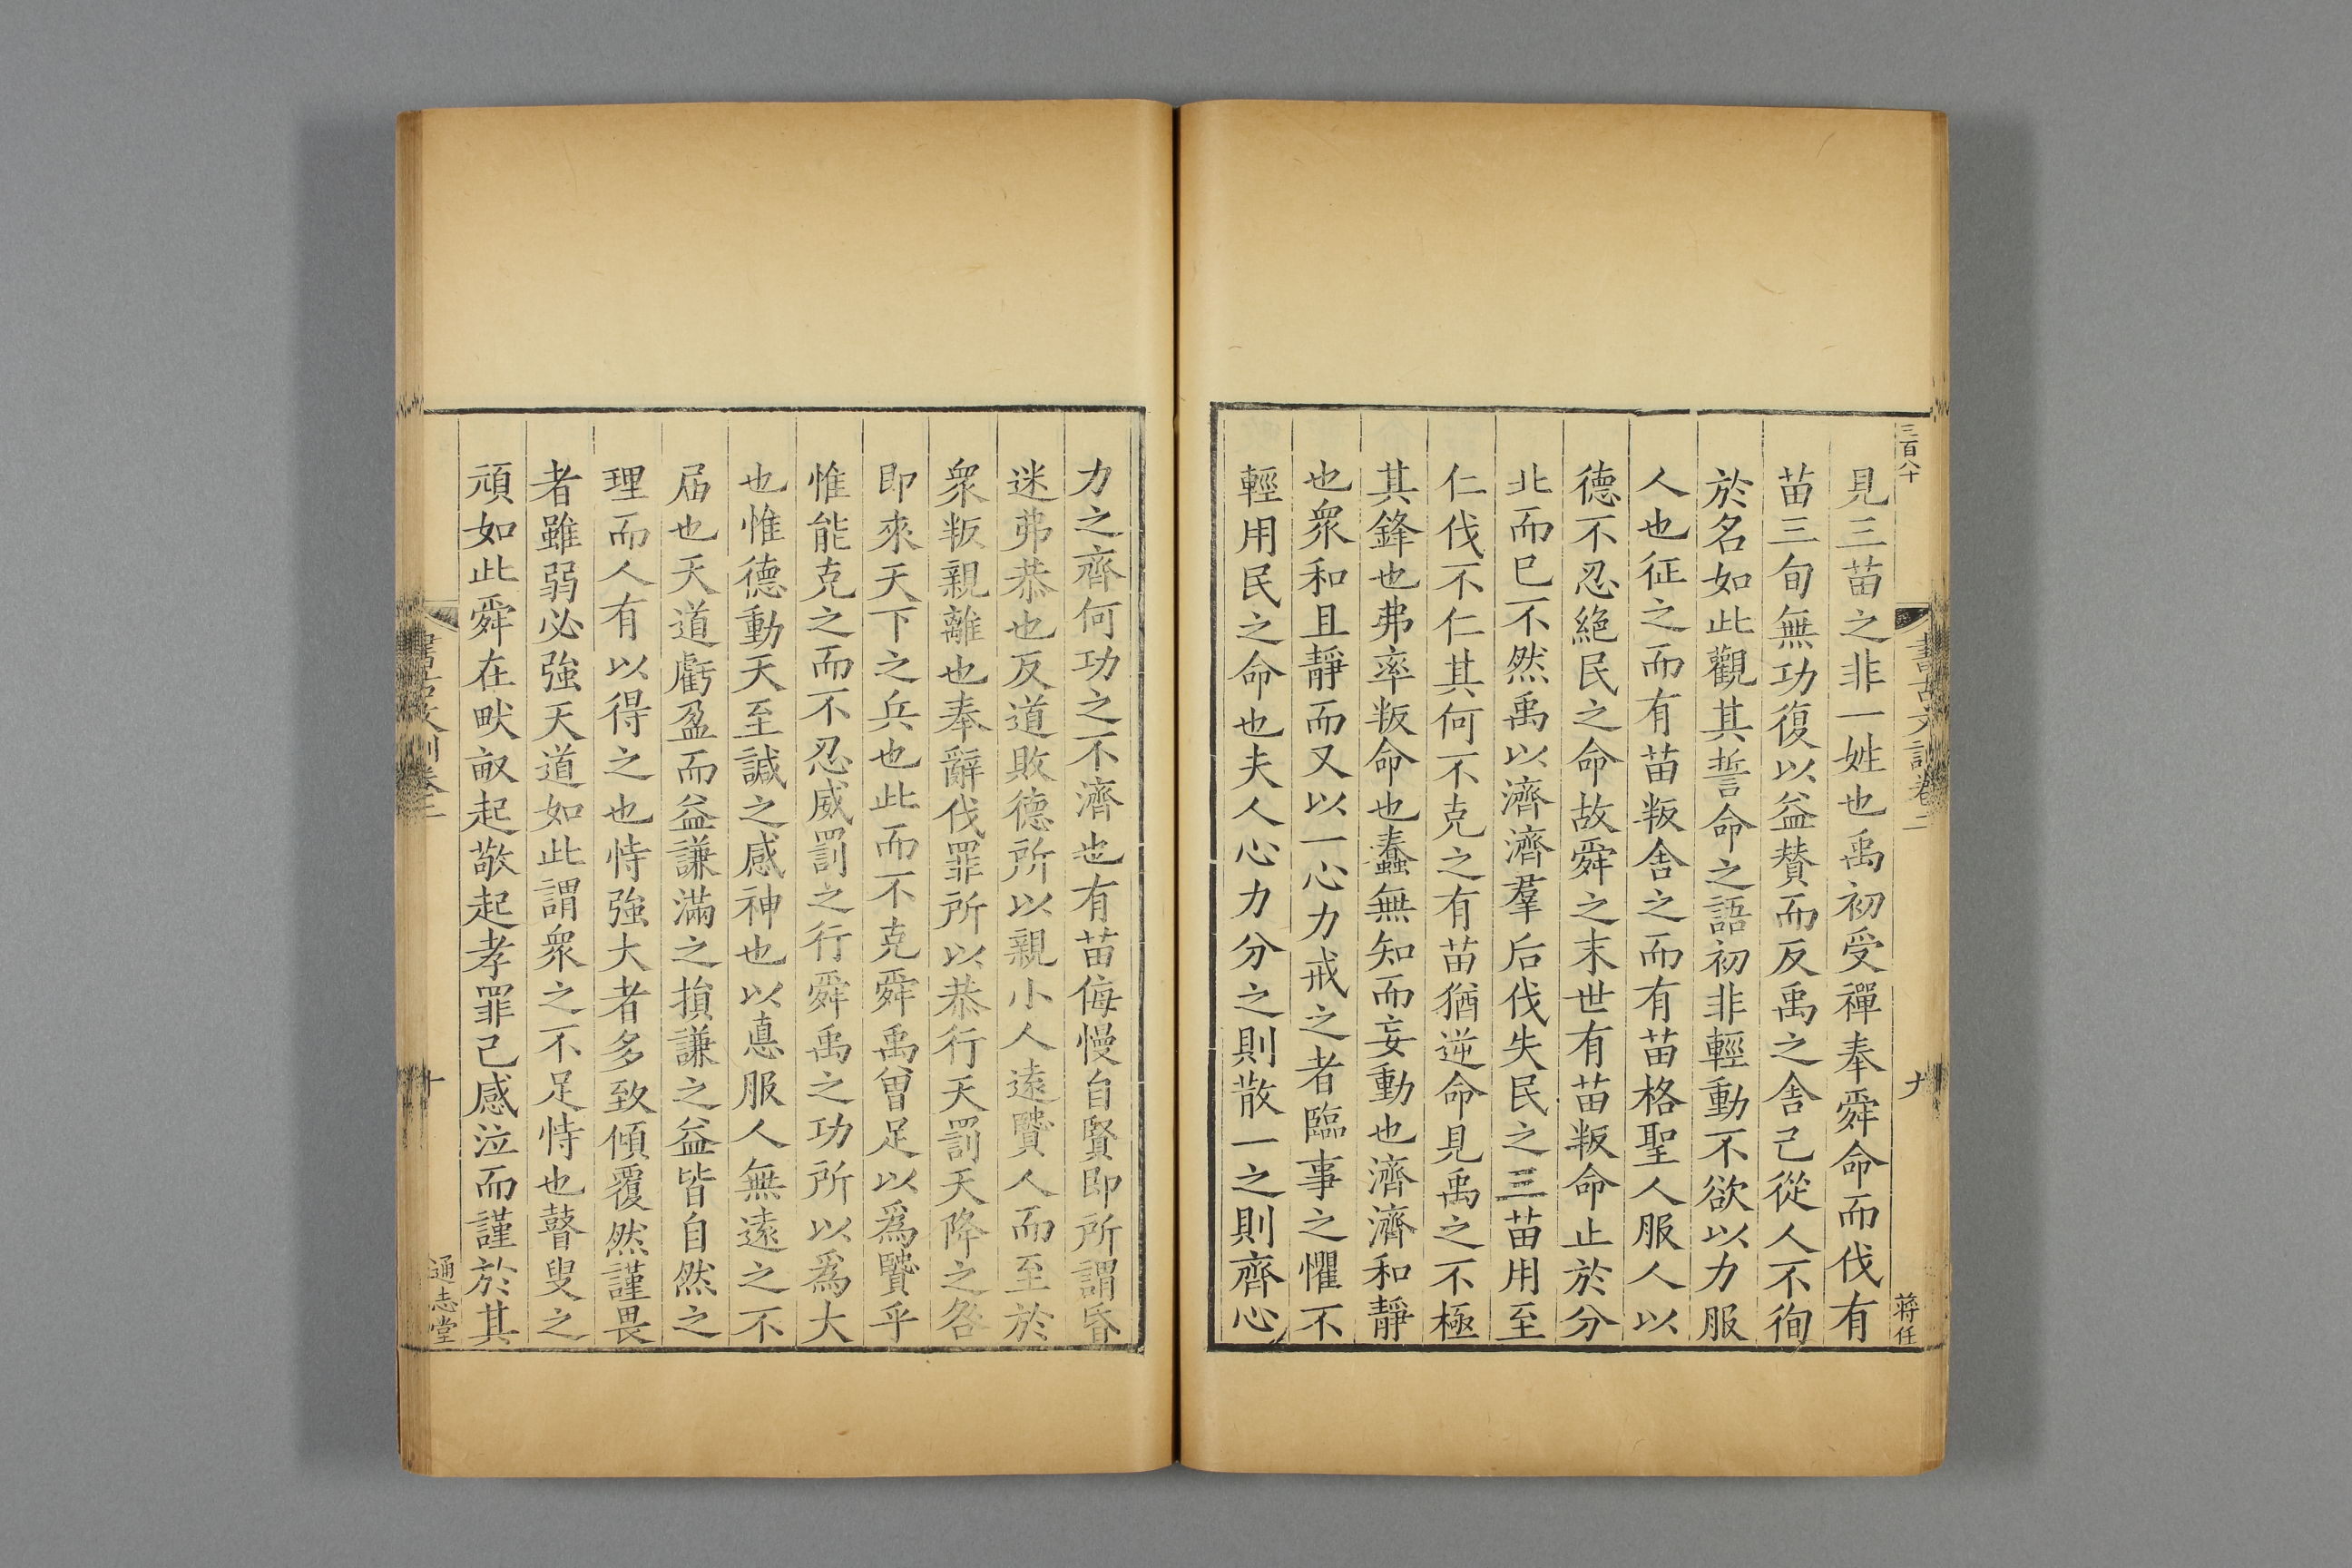 三百八十
書古文訓卷二
九
蔣任
見三苗之非一姓也禹初受禪奉舜命而伐有
苗三旬無功復以益賛而反禹之舎己從人不徇
於名如此觀其誓命之語初非輕動不欲以力服
人也征之而有苗叛舎之而有苗格聖人服人以
德不忍絕民之命故舜之末世有苗叛命止於分
北而已不然禹以濟濟羣后伐失民之三苗用至
仁伐不仁其何不克之有苗猶逆命見禹之不極
其鋒也弗率叛命也蠢無知而妄動也濟濟和靜
也衆和且靜而又以一心力戒之者臨事之懼不
輕用民之命也夫人心力分之則散一之則齊心
力之齊何功之不濟也有苗侮慢自賢即所謂昏
迷弗恭也反道敗德所以親小人逺贒人而至於
衆叛親離也奉辭伐罪所以恭行天罰天降之咎
即來天下之兵也此而不克舜禹曾足以爲贒乎
惟能克之而不忍威罰之行舜禹之功所以爲大
也惟德動天至諴之感神也以悳服人無逺之不
届也天道虧盈而益謙滿之損謙之益皆自然之
理而人有以得之也恃強大者多致傾覆然謹畏
者雖弱必強天道如此謂衆之不足恃也瞽叟之
頑如此舜在畎畝起敬起孝罪己感泣而謹於其
書古文訓卷二
十
通志堂